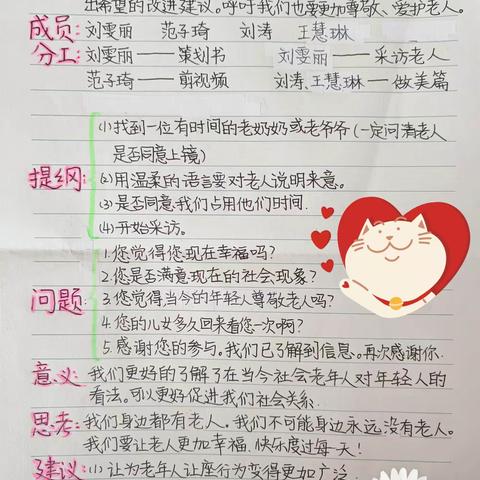 出希望的改进建议。呼吁我们也要更加尊敬、爱护老人。
成员: 刘雯丽 范子琦 刘涛 王慧琳
分工: 刘雯丽——策划书 刘雯丽——采访老人
范子琦——剪视频 刘涛、王慧琳——做美篇
(1)找到一位有时间的老奶奶或老爷爷(一定问清老人
是否同意上镜)
提纲: (2)用温柔的语言要对老人说明来意。
(3)是否同意我们占用他们时间.
(4)开始采访。
1.您觉得您现在幸福吗?
2.您是否满意现在的社会现象?
问题: 3.您觉得当今的年轻人尊敬老人吗?
4.您的儿女多久回来看您一次啊?
5.感谢您的参与。我们已了解到信息。再次感谢你.
意义: 我们更好的了解了在当今社会老年人对年轻人的
看法。可以更好促进我们社会关系.
思考: 我们身边都有老人。我们不可能身边永远没有老人。
我们要让老人更加幸福.快乐度过每一天!
建议: (1)让为老年人让座行为变得更如广泛.